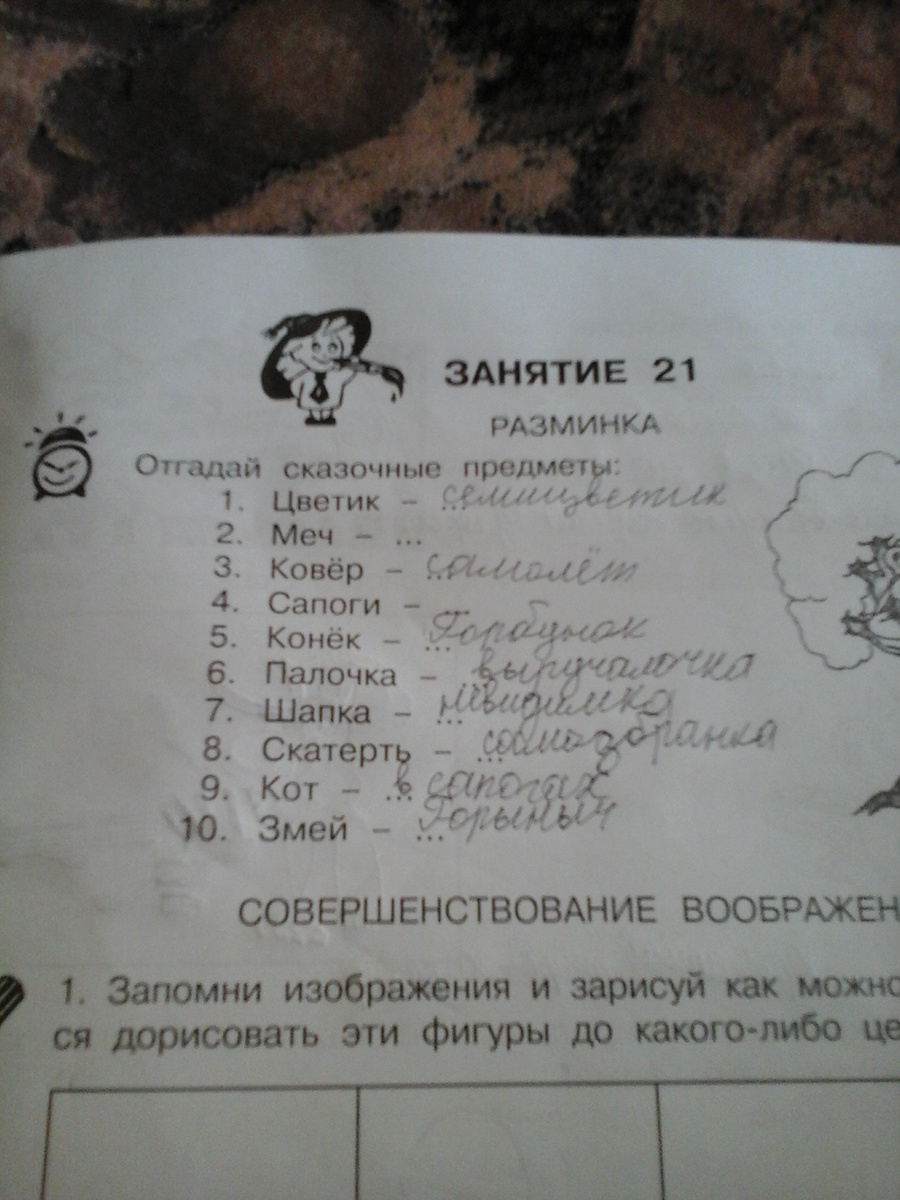 ЗАНЯТИЕ 21
РАЗМИНКА
Отгадай сказочные предметы:
1. Цветик – ... семицветик
2. Меч – ...
3. Ковёр – ... самолёт
4. Сапоги –
5. Конёк – ... Горбунок
6. Палочка – ... выручалочка
7. Шапка – ... невидимка
8. Скатерть – ... самобранка
9. Кот – ... в сапогах
10. Змей – ... Горыныч
СОВЕРШЕНСТВОВАНИЕ ВООБРАЖЕН
1. Запомни изображения и зарисуй как можно
ся дорисовать эти фигуры до какого-либо це